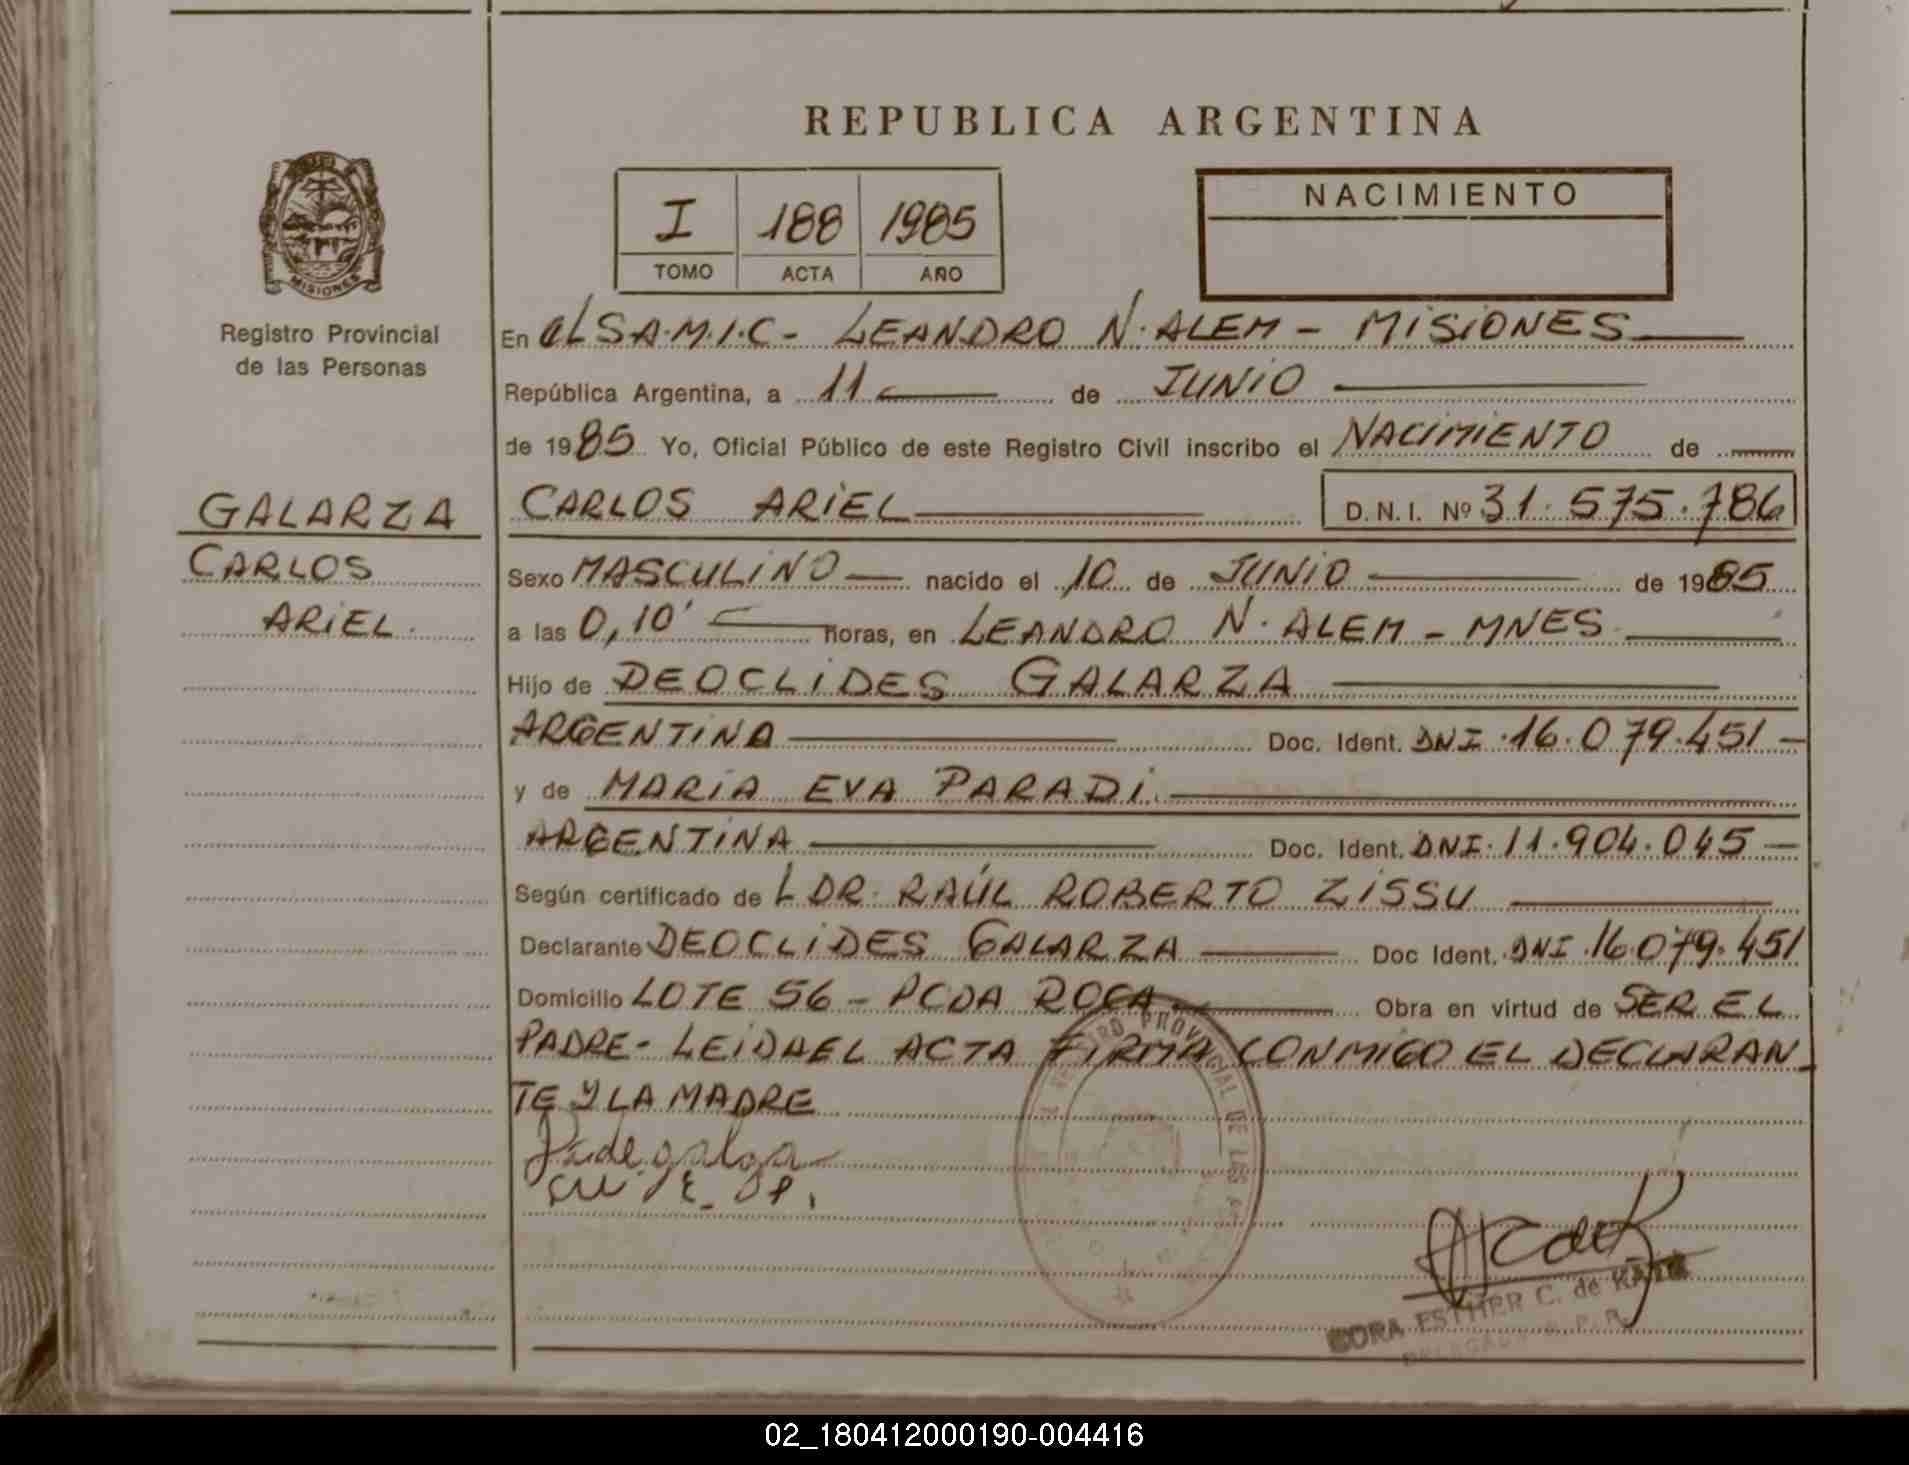 REPUBLICA ARGENTINA
NACIMIENTO
I 188 1985
TOMO ACTA AÑO
MISIONES
Registro Provincial
de las Personas
GALARZA
CARLOS
ARIEL.
En el SA.M.I.C- LEANDRO N. ALEM - MISIONES
República Argentina, a 11 de JUNIO
de 1985 Yo, Oficial Público de este Registro Civil inscribo el NACIMIENTO de
CARLOS ARIEL D.N.I. Nº 31.575.786
Sexo MASCULINO nacido el 10 de JUNIO de 1985
a las 0,10' horas, en LEANDRO N. ALEM - MNES
Hijo de DEOCLIDES GALARZA
ARGENTINA Doc. Ident. DNI.16.079.451
y de MARIA EVA PARADI
ARGENTINA Doc. Ident. DNI.11.904.045
Según certificado de L DR. RAÚL ROBERTO ZISSU
Declarante DEOCLIDES GALARZA Doc Ident. DNI.16.079.451
Domicilio LOTE 56 - PCDA ROCA Obra en virtud de SER EL
PADRE- LEIDA EL ACTA FIRMA CONMIGO EL DECLARAN_
TE Y LA MADRE
ESTHER C. de
02_180412000190-004416